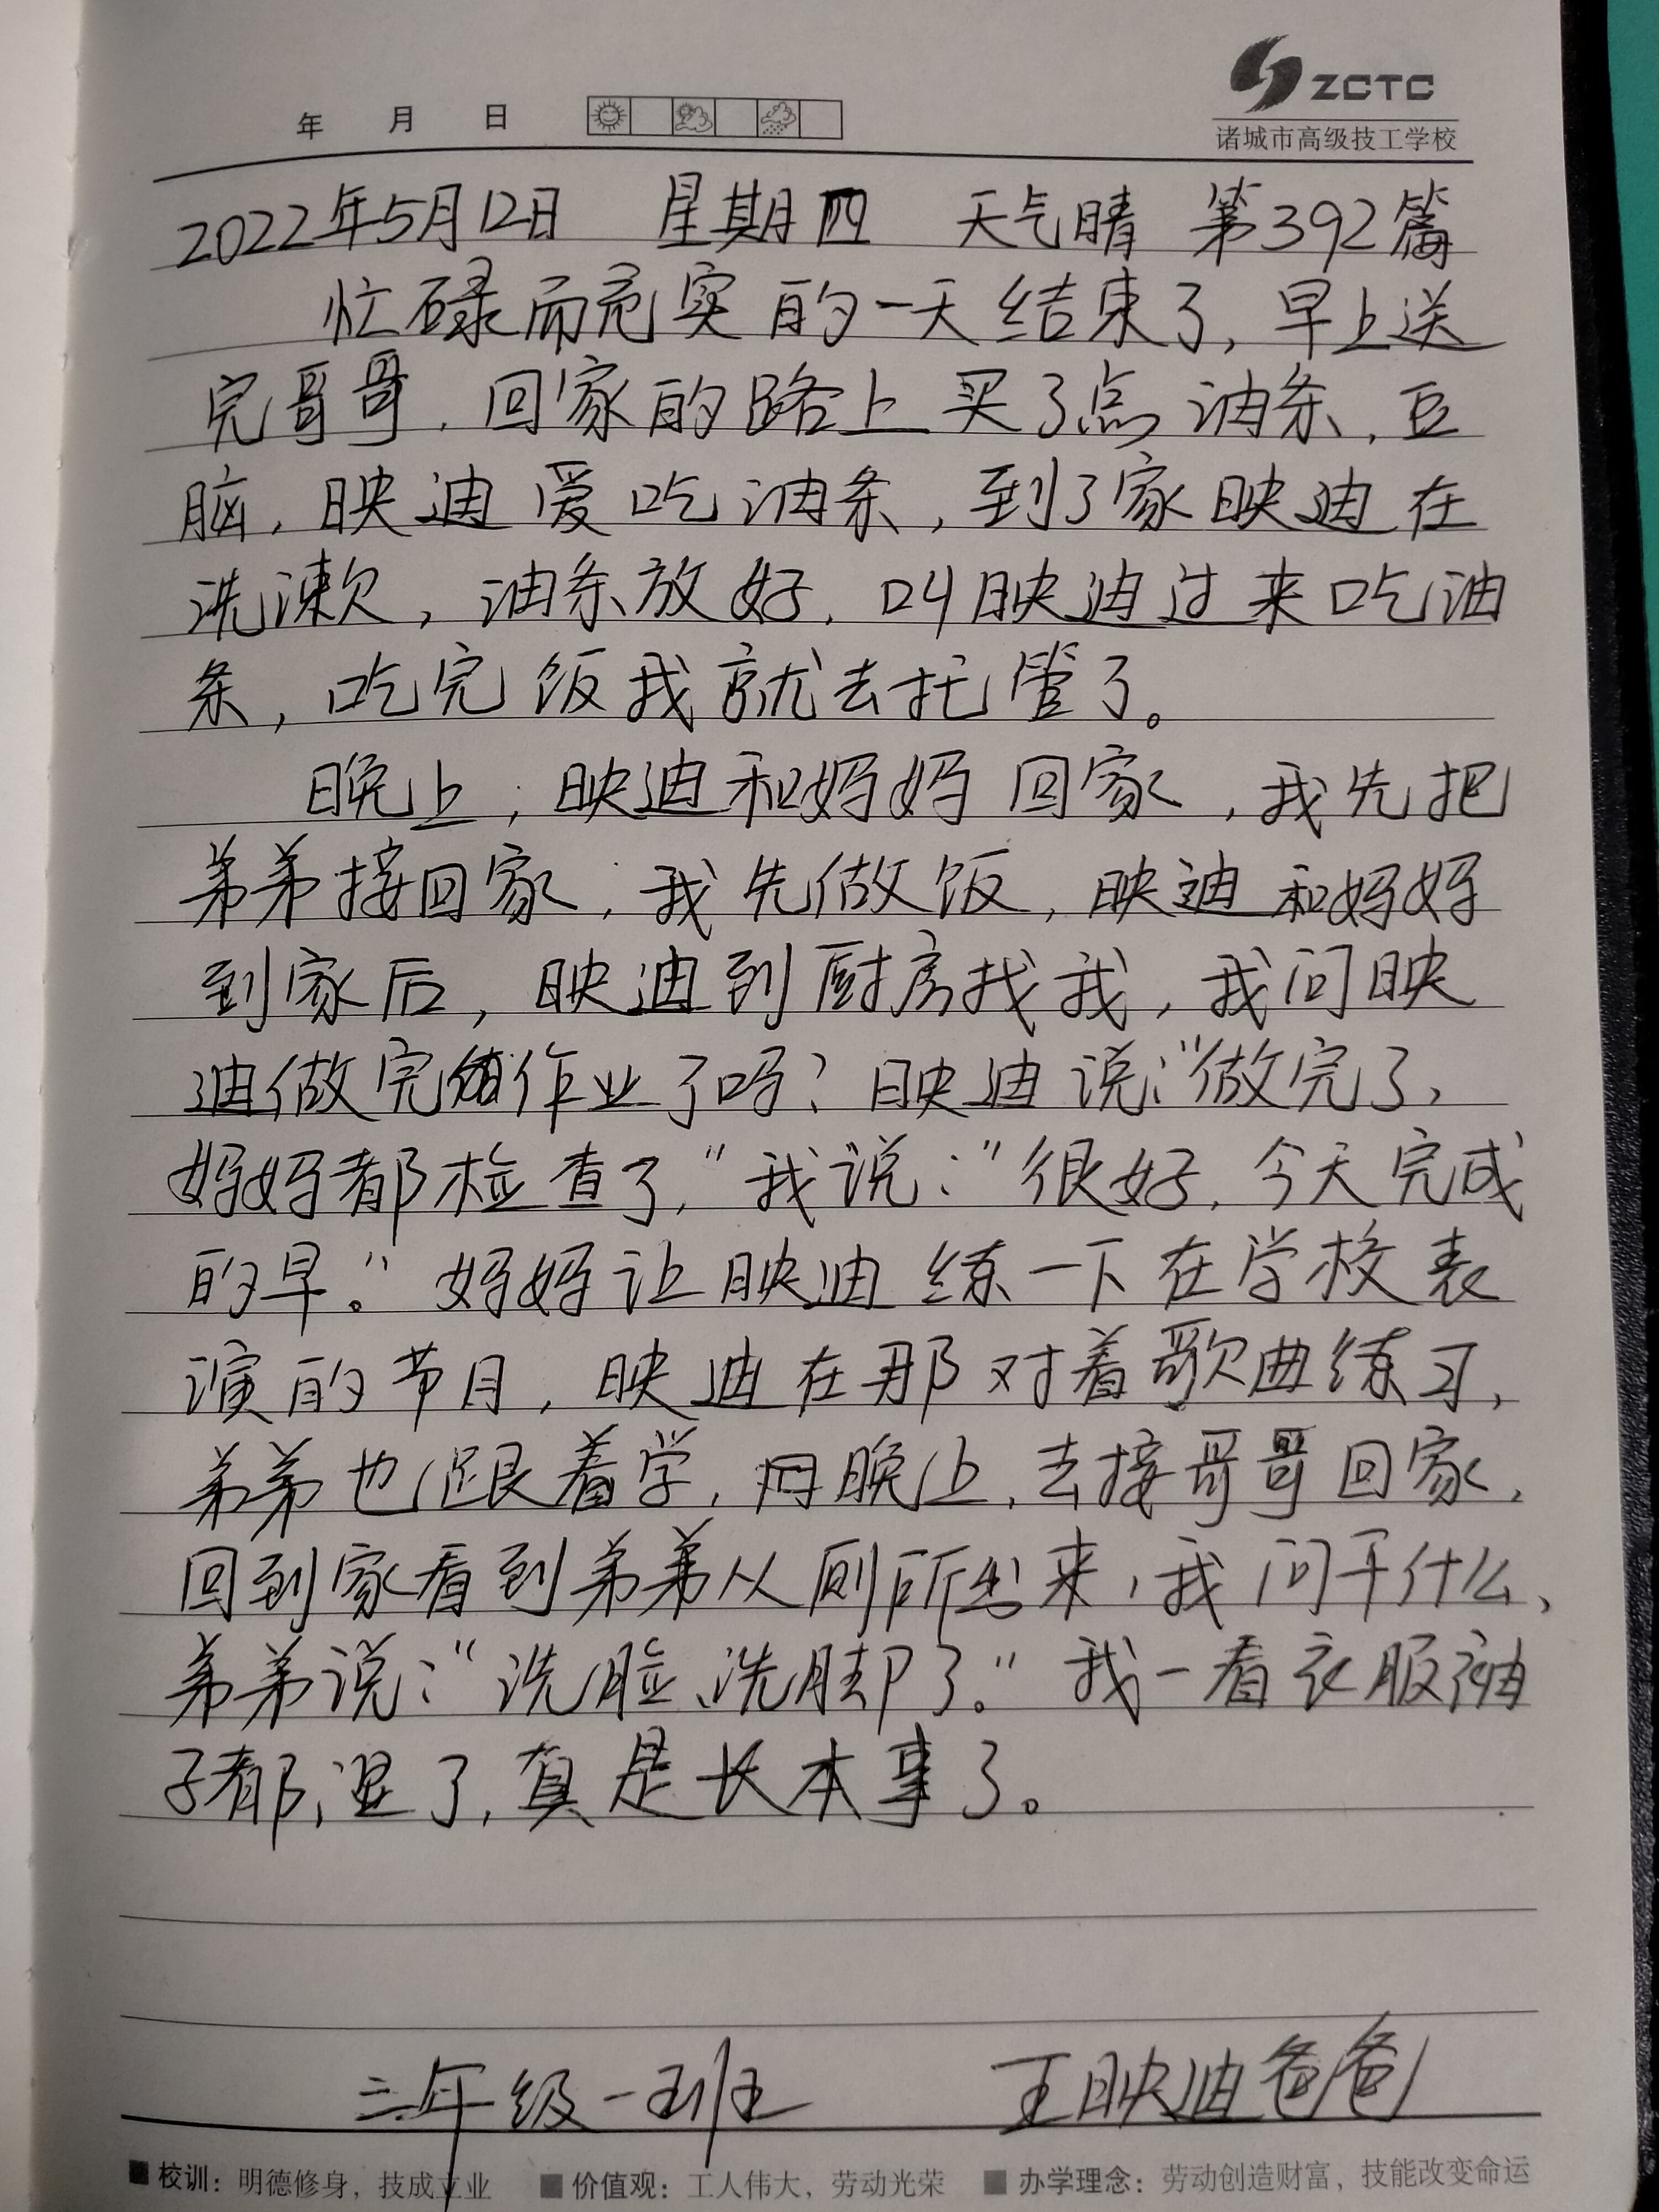 ZCTC
年 月 日
诸城市高级技工学校
2022年5月12日 星期四 天气晴 第392篇
忙碌而充实的一天结束了,早上送
完哥哥,回家的路上买了点油条,豆
脑,映迪爱吃油条,到了家映迪在
洗漱,油条放好,叫映迪过来吃油
条,吃完饭我就去托管了。
晚上,映迪和妈妈回家,我先把
弟弟接回家,我先做饭,映迪和妈妈
到家后,映迪到厨房找我,我问映
迪做完作业了吗?映迪说:“做完了,
妈妈都检查了,”我说:“很好,今天完成
的早。”妈妈让映迪练一下在学校表
演的节目,映迪在那对着歌曲练习,
弟弟也跟着学,晚上,去接哥哥回家,
回到家看到弟弟从厕所出来,我问干什么、
弟弟说:“洗脸、洗脚了。”我一看衣服袖
子都湿了,真是长本事了。
三年级一班 王映迪爸爸
■校训:明德修身,技成立业 ■价值观:工人伟大,劳动光荣 ■办学理念:劳动创造财富,技能改变命运